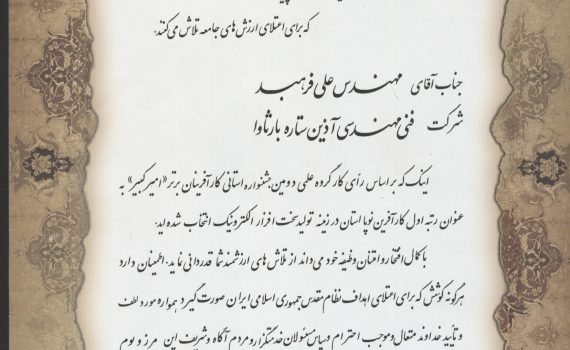 که برای اعتلای ارزش های جامعه تلاش می کنند:
جناب آقای مهندس علی فرهبد
شرکت فنی مهندسی آذین ستاره بارثاوا
اینک که بر اساس رأی کارگروه علمی دومین جشنواره استانی کارآفرینان برتر «امیرکبیر» به
عنوان رتبه اول کارآفرین نوپا استان در زمینه تولید سخت افزار الکترونیک انتخاب شده اید:
با کمال افتخار و امتنان وظیفه خود می داند از تلاش های ارزشمند شما قدردانی نماید. اطمینان دارد
هرگونه کوشش که برای اعتلای اهداف نظام مقدس جمهوری اسلامی ایران صورت گیرد همواره مورد لطف
و تأیید خداوند متعال و موجب احترام و سپاس مسئولان خدمتگزار و مردم آگاه و شریف این مرز و بوم